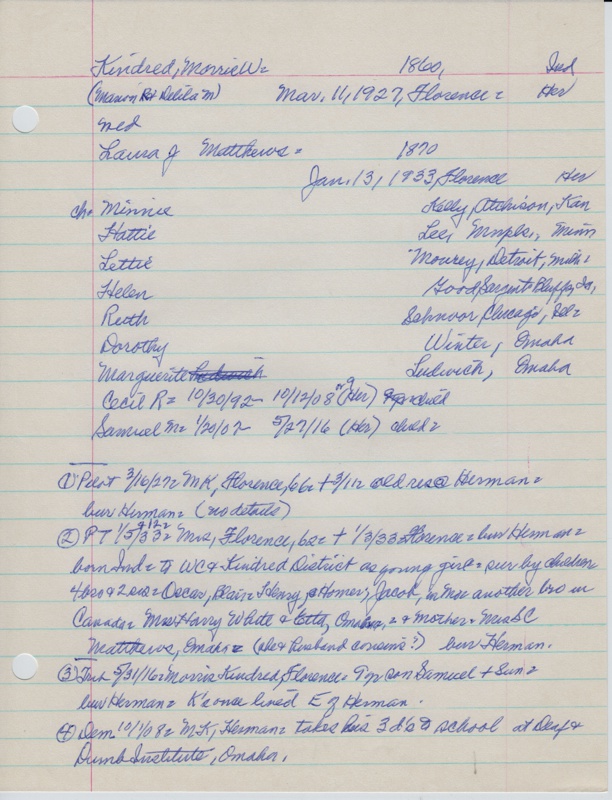 Kindred, Morris W= 1860, Ind
(Marion R + Delila M) Mar. 11, 1927, Florence = Her
med
Laura J Matthews = 1870
Jan. 13, 1933, Florence Her
ch. Minnie Kelly, Atchison, Kan
Hattie Lee, Mnpls., Minn
Lettie Mourey, Detroit, Mich =
Helen Good, Sargents Bluffs, Ia,
Ruth Schnoor, Chicago, Ill =
Dorothy Winter, Omaha
Marguerite Ludwich, Omaha
Cecil R = 10/30/92 - 10/12/08 or 9 (Her)
Samuel M = 1/20/02 - 5/27/16 (Her) child =
① Pilot 3/16/27 = MK, Florence, 66 = + 3/11 = old res @ Herman =
bur Herman = (no details)
② PT 1/5/33 + 12 = Mrs, Florence, 62 = + 1/3/33 Florence = bur Herman =
born Ind = to WC + Kindred District as young girl = sur by children
4 bro + 2 sis = Oscar, Blair = Henry, Homer, Jacob, in Mo = another bro in
Canada = Mrs Harry White + Etta, Omaha, = + Mother = Mrs SC
Matthews, Omaha = (she + husband cousins?) bur Herman.
③ Trib 5/31/16 = Morris Kindred, Florence = 7 yr son Samuel + Sun =
bur Herman = K's once lived E of Herman.
④ Dem 10/1/08 = MK, Herman = takes his 3 d's to school at Deaf +
Dumb Institute, Omaha.